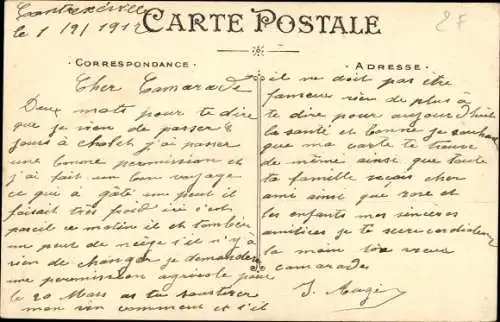 Contrexéville
le 1/2/1917
CARTE POSTALE
2F
CORRESPONDANCE
ADRESSE
Cher Camarade
Deux mots pour te dire
que je vien de passer 8
jours à cholet j'ai passer
une bonne permission et
j'ai fait un bon voyage
ce qui à gâté une peut il
faisait très froid ici c'est
pareil ce matin il et tombér
un peut de neige s'il n'y a
rien de changer je demandera
une permission agricole pour
le 20 Mars as tu
mon vin comment et s'il
il ne doit pas être
fameux rien de plus à
te dire pour aujourd'huit
la santé et bonne je souhait
que ma carte te trouve
de même ainsi que toute
ta famille reçois cher
ami ainsi que rose et
les enfants mes sincères
amitiées je te serre cordialem
la main ton vieux
camarade